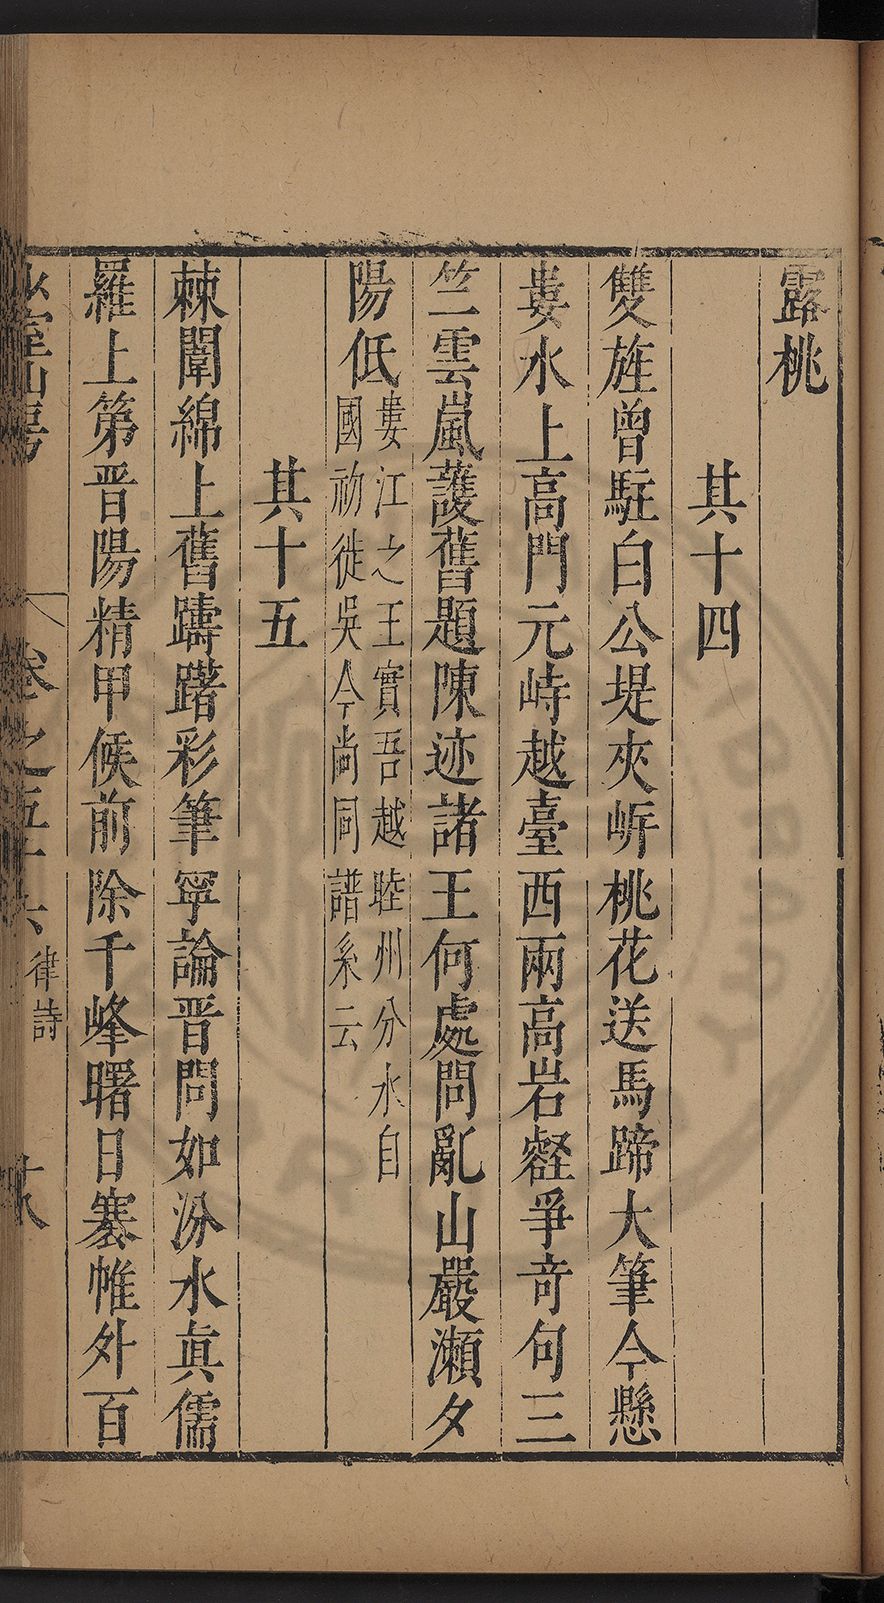 露桃
其十四
雙旌曾駐白公堤夾岍桃花送馬蹄大筆今懸
婁水上高門元峙越臺西兩高岩壑爭奇句三
竺雲嵐護舊題陳迹諸王何處問亂山嚴瀨夕
陽低
婁江之王實吾越睦州分水自
國初徙吳今尚同譜系云
其十五
棘闈綿上舊躊躇彩筆寧論晋問如汾水真儒
羅上第晋陽精甲候前除千峰曙日褰帷外百
山房
卷之五十六
律詩